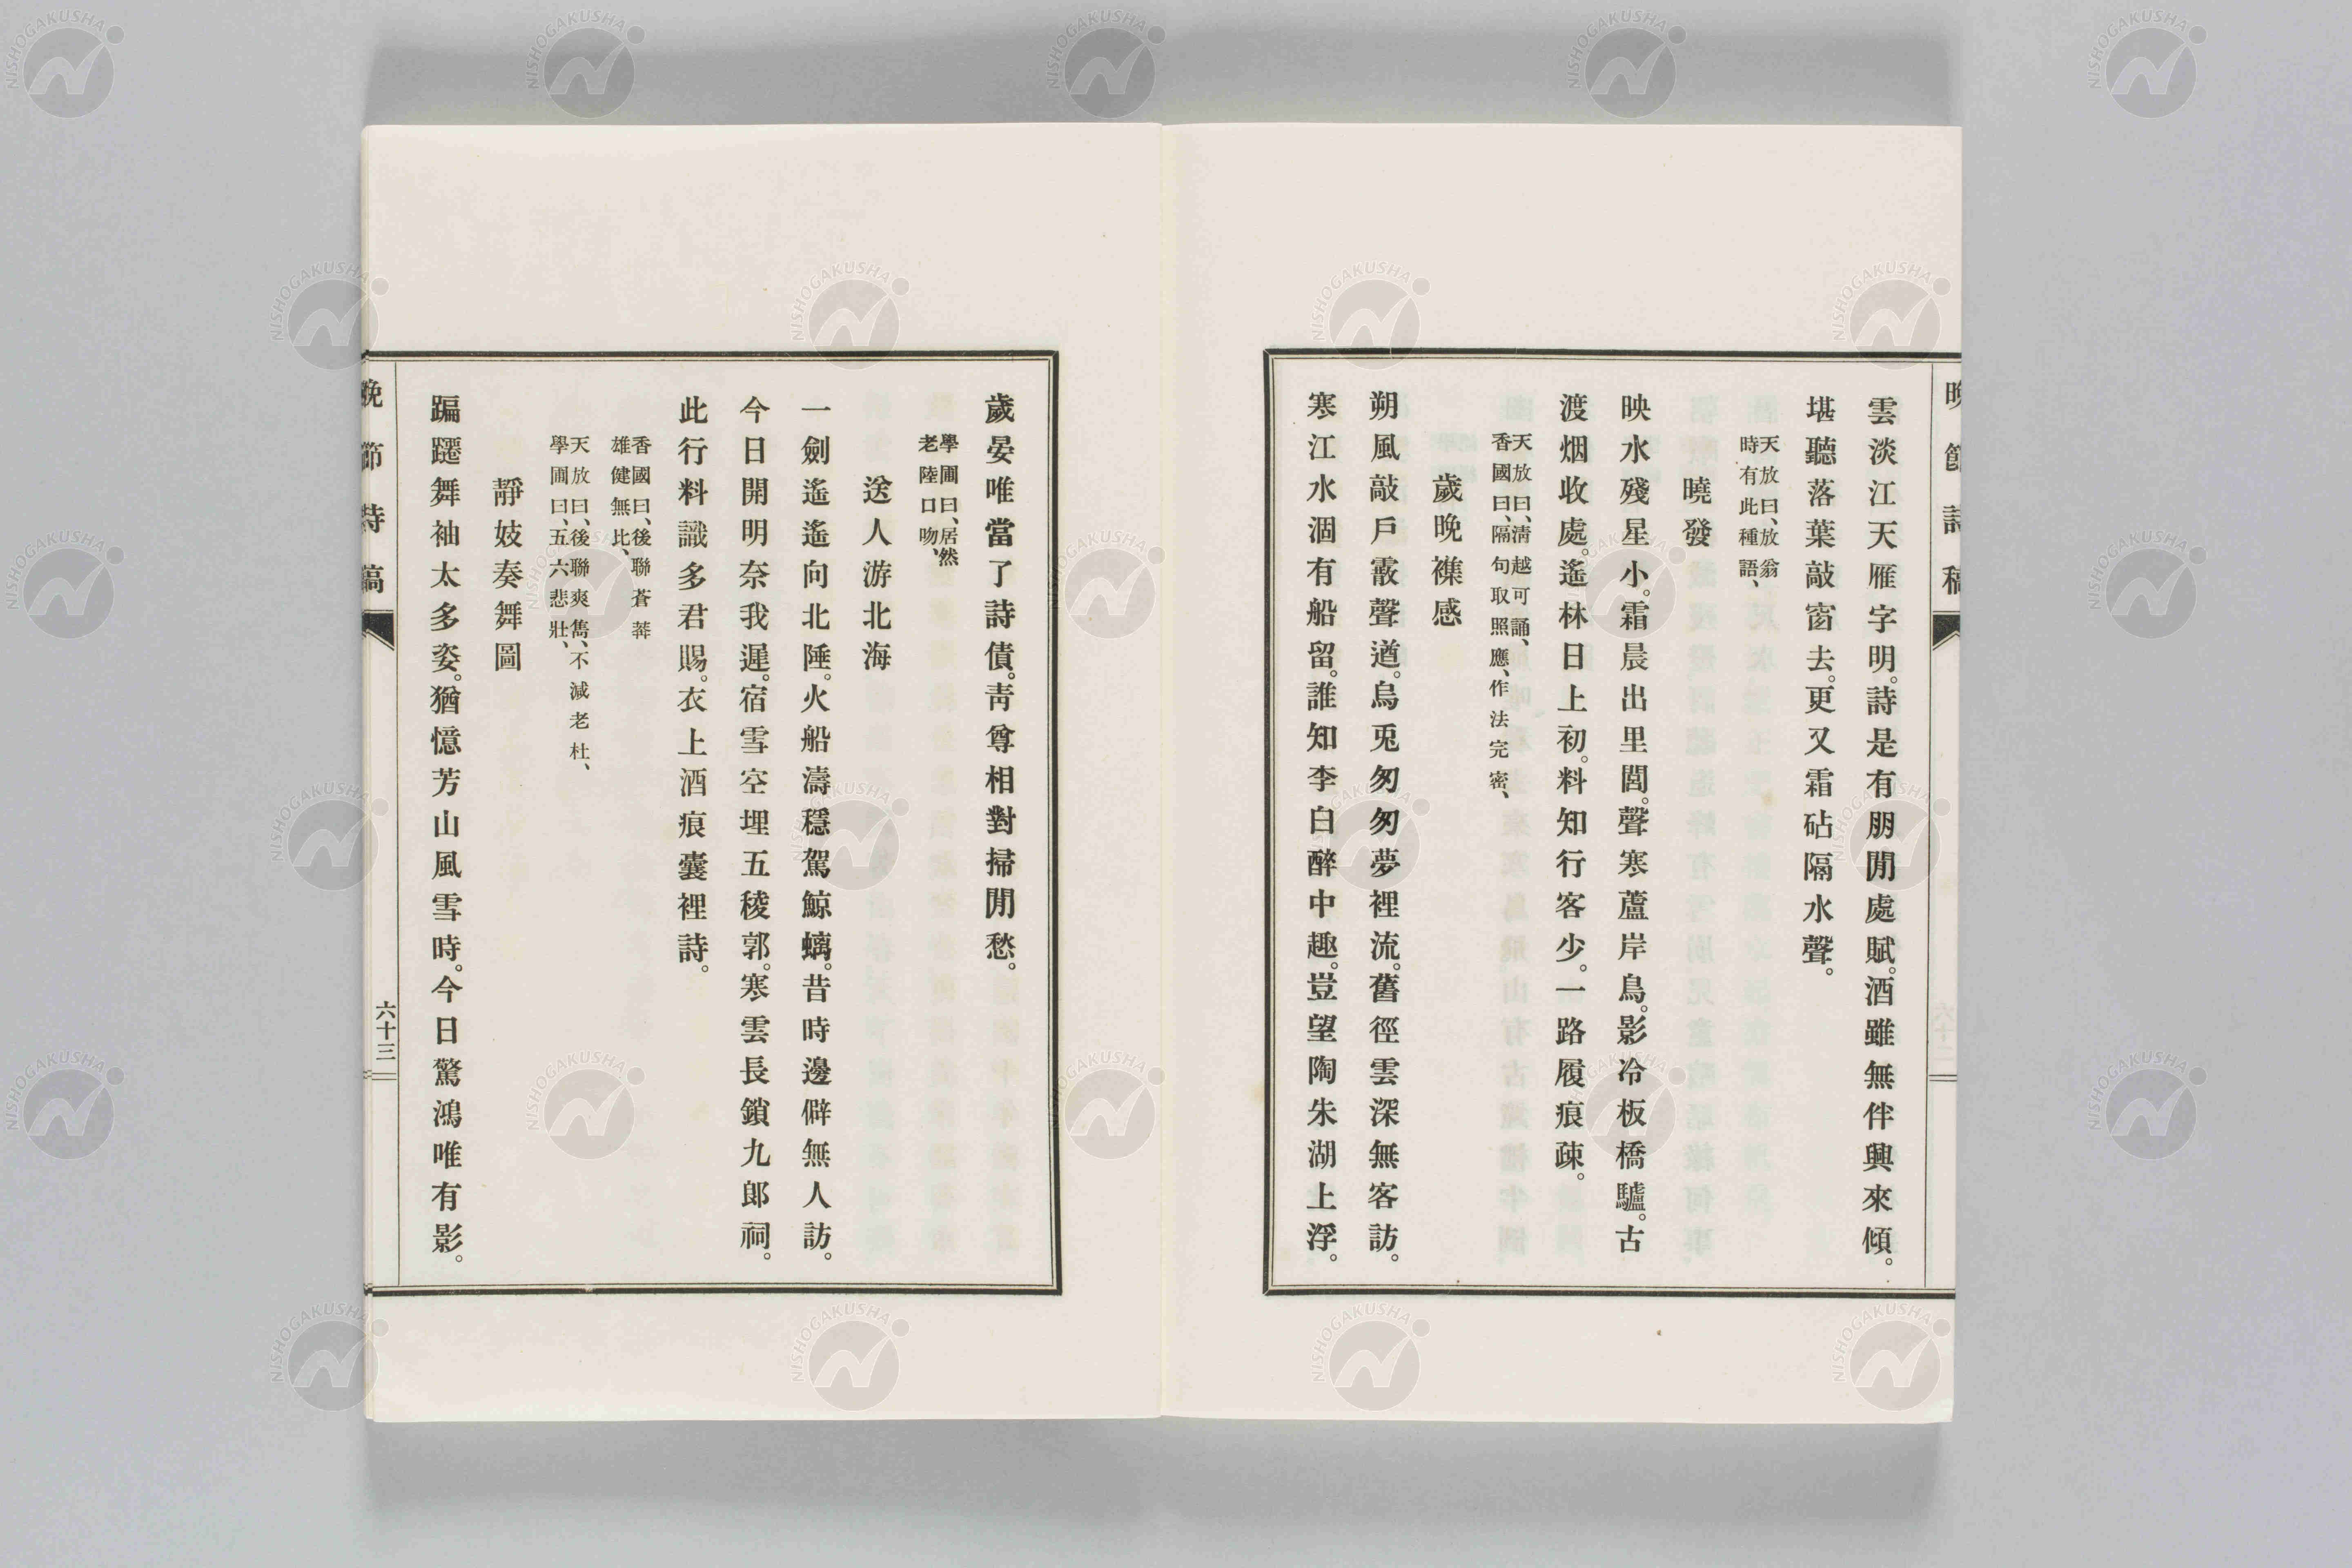 晚節詩稿
雲淡江天雁字明。詩是有朋閒處賦。酒雖無伴興來傾。
堪聽落葉敲窗去。更又霜砧隔水聲。
天放曰、放翁
時有此種語、
曉發
映水殘星小。霜晨出里閭。聲寒蘆岸鳥。影冷板橋驢。古
渡烟收處。遙林日上初。料知行客少。一路履痕疎。
天放曰、淸越可誦、
香國曰、隔句取照應、作法完密、
歲晩襍感
朔風敲戶霰聲遒。烏兎匆匆夢裡流。舊徑雲深無客訪。
寒江水涸有船留。誰知李白醉中趣。豈望陶朱湖上浮。
歲晏唯當了詩債。靑尊相對掃閒愁。
學圃曰、居然
老陸口吻、
送人游北海
一劍遙遙向北陲。火船濤穩駕鯨螭。昔時邊僻無人訪。
今日開明奈我遲。宿雪空埋五稜郭。寒雲長鎖九郞祠。
此行料識多君賜。衣上酒痕囊裡詩。
香國曰、後聯蒼莽
雄健無比、
天放曰、後聯爽雋、不減老杜、
學圃曰、五六悲壯、
靜妓奏舞圖
蹁躚舞袖太多姿。猶憶芳山風雪時。今日驚鴻唯有影。
晚節詩稿
六十三
NISHOGAKUSHA